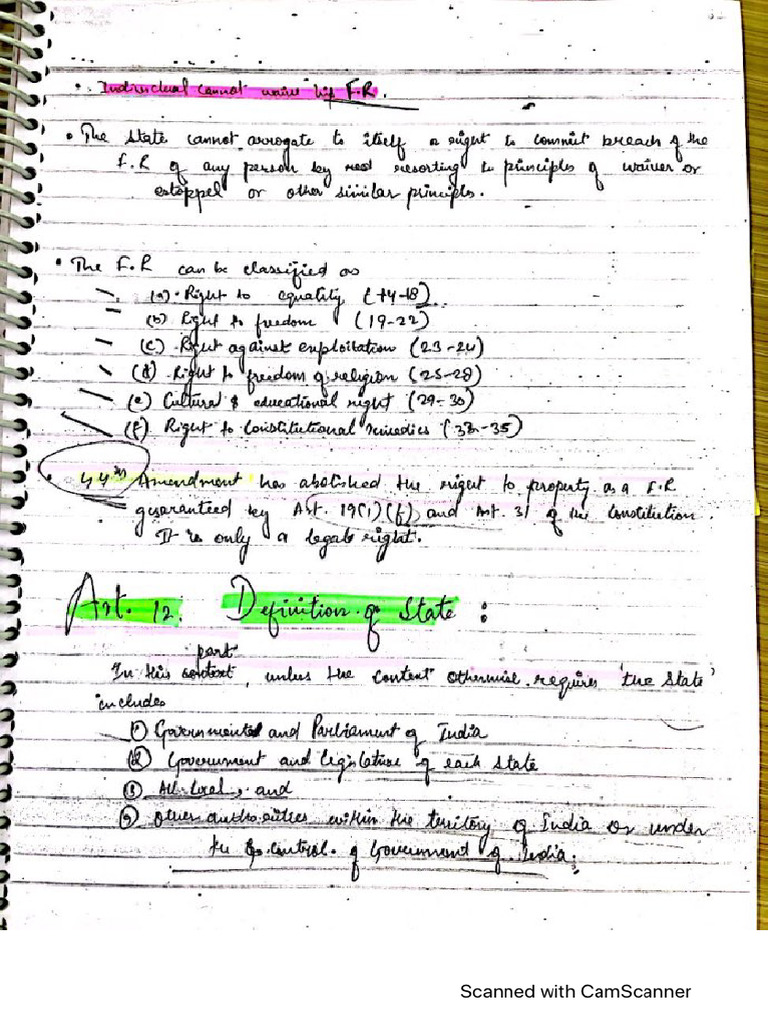 Individual cannot waive his F.R.
• The State cannot arrogate to itself a right to commit breach of the
F.R of any person by resorting to principles of waiver or
estoppel or other similar principles.
• The F.R can be classified as
(a) Right to equality (14-18)
(b) Right to freedom (19-22)
(c) Right against exploitation (23-24)
(d) Right to freedom of religion (25-28)
(e) Cultural & educational right (29-30)
(f) Right to Constitutional remedies (32-35)
• 44th Amendment has abolished the right to property as a F.R
guaranteed by Art. 19(1)(f) and Art. 31 of the Constitution.
It is only a legal right.
Art. 12. Definition of State :
part
In this context, unless the content otherwise requires 'the State'
includes
① Government and Parliament of India
② Government and legislature of each State
③ All local, and
other authorities within the territory of India or under
the control of Government of India.
Scanned with CamScanner